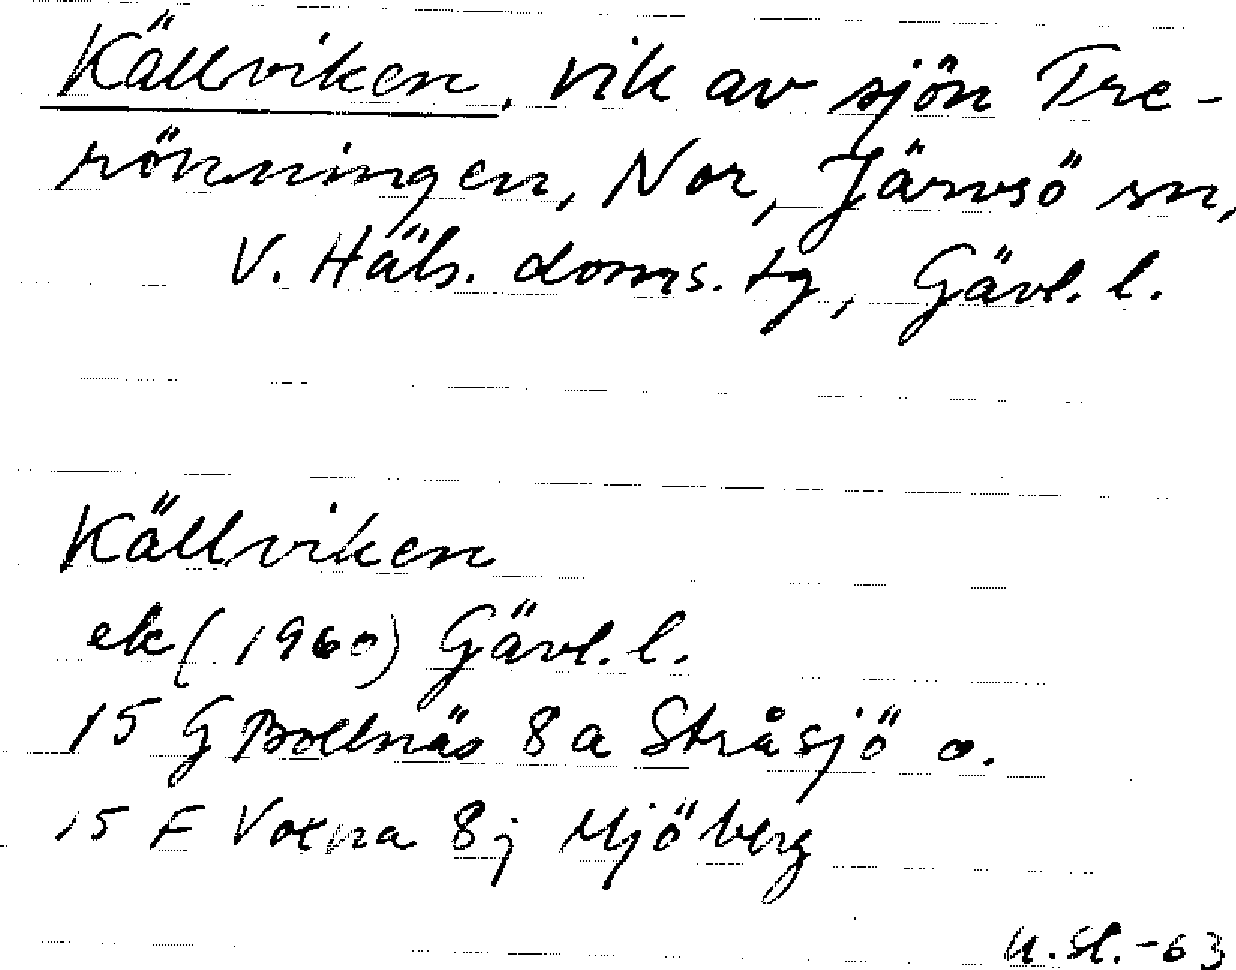 Källviken, vik av sjön Tre-
rönningen, Nor, Järvsö sn,
V. Häls. doms. tg, Gävl. l.
Källviken
ek (1960) Gävl. l.
15 G Bollnäs 8 a Stråsjö o.
15 F Voxna 8 j Mjöberg
U.Sl.-63